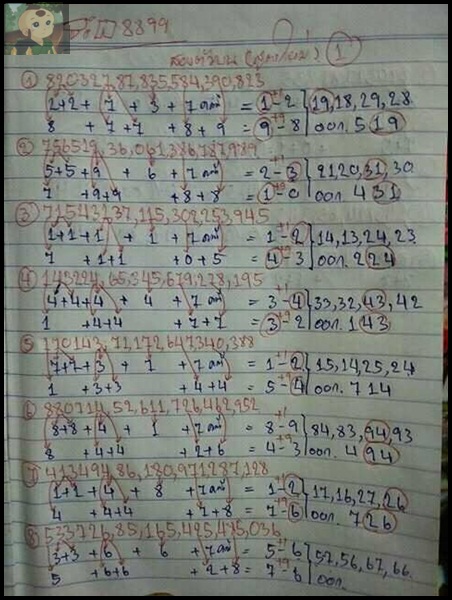 8899
สองตัวบน 1
① 820327,87,835,584,390,823
2+2+ 7 + 3 + 7 คงที่ = 1-2 } 19,18,29,28
8 + 7+7 + 8+9 = 9-8 } ออก. 519
② 756529,36,061,386,787,989
5+5+9 + 6 + 7 คงที่ = 2-3 } 21,20,31,30
7 + 9+9 + 8+8 = 1-0 } ออก. 431
③ 715431,37,115,302,253,945
1+1+1 + 1 + 7 คงที่ = 1-2 } 14,13,24,23
7 + 1+1 + 0+5 = 4-3 } ออก. 224
④ 145224,65,345,679,228,195
4+4+4 + 4 + 7 คงที่ = 3-4 } 33,32,43,42
1 + 4+4 + 7+7 = 3-2 } ออก. 143
⑤ 170143,71,172,647,340,388
7+7+3 + 7 + 7 คงที่ = 1-2 } 15,14,25,24
1 + 3+3 + 4+4 = 5-4 } ออก. 714
⑥ 880714,52,611,726,462,952
8+8+4 + 1 + 7 คงที่ = 8-9 } 84,83,94,93
8 + 4+4 + 2+6 = 4-3 } ออก. 494
⑦ 413494,86,180,971,287,128
1+1+4 + 8 + 7 คงที่ = 1-2 } 17,16,27,26
4 + 4+4 + 7+8 = 7-6 } ออก. 726
⑧ 533726,85,165,425,475,036
3+3+6 + 6 + 7 คงที่ = 5-6 } 57,56,67,66
5 + 6+6 + 2+8 = 7-6 } ออก.